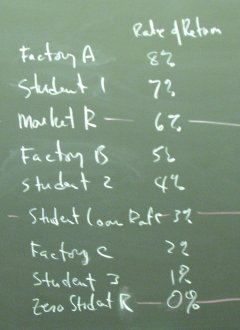 Rate of Return
Factory A 8%
Student 1 7%
Market R 6%
Factory B 5%
Student 2 4%
Student Loan Rate 3%
Factory C 2%
Student 3 1%
Zero Student R 0%